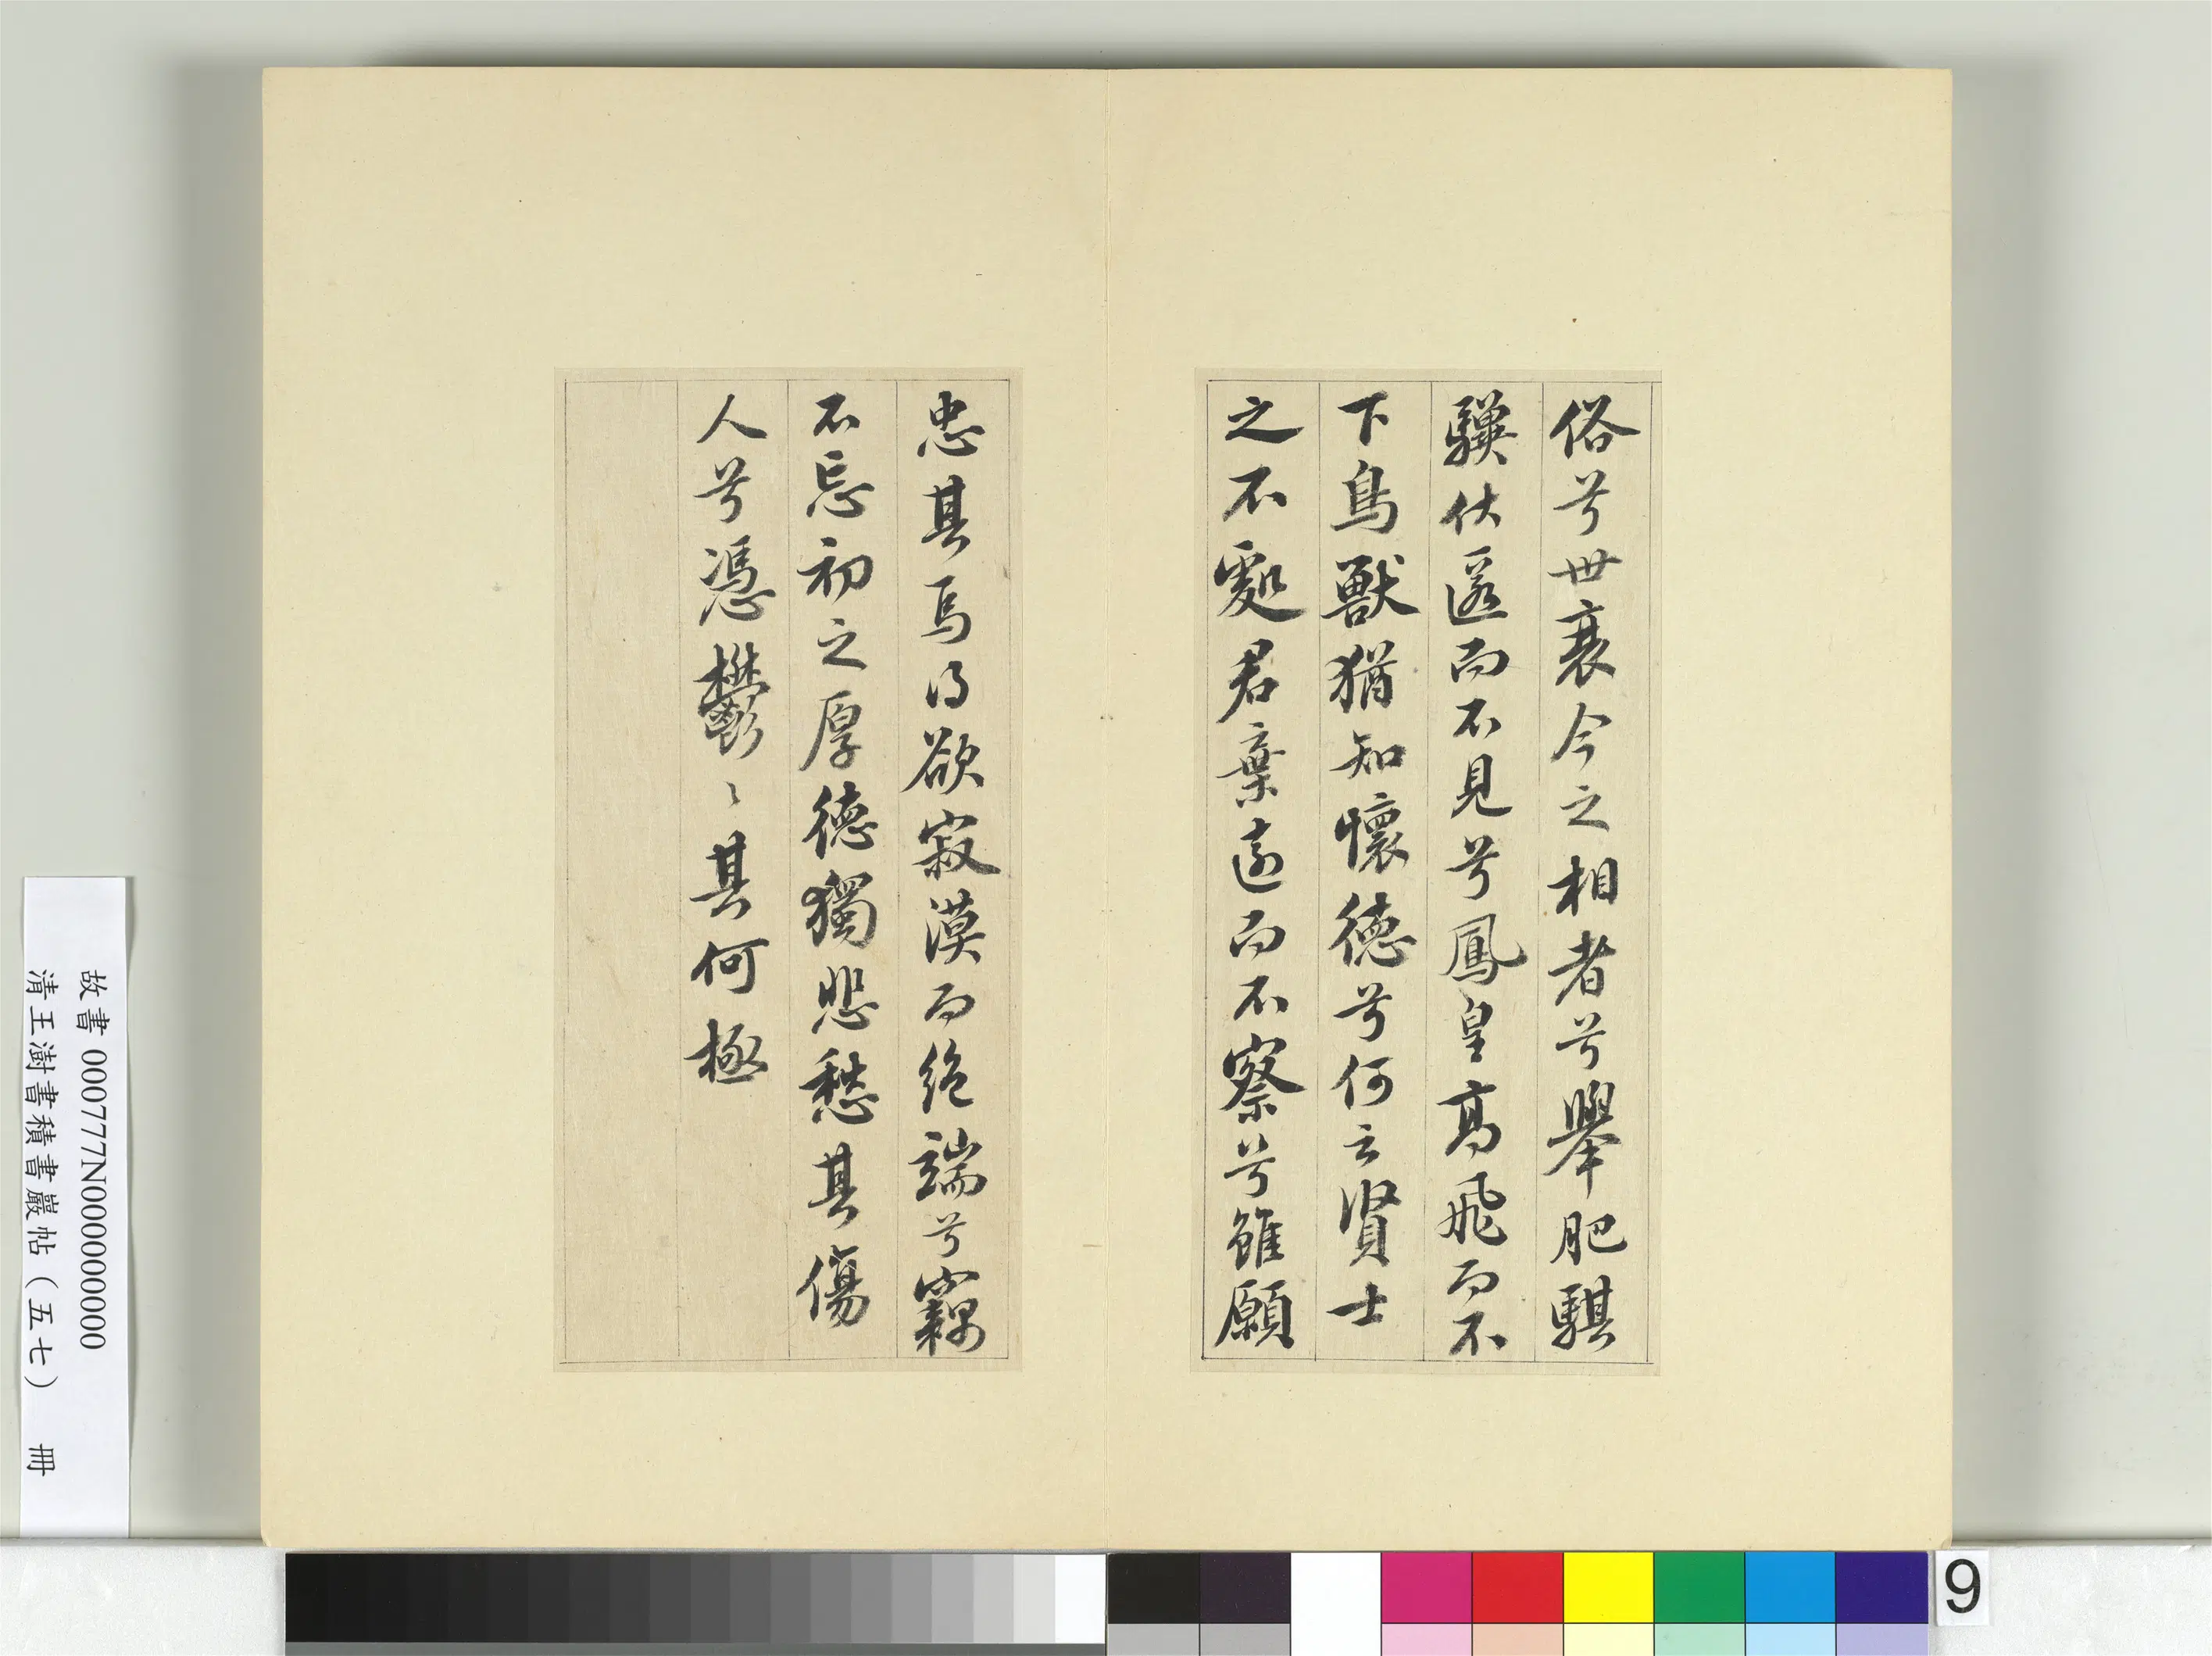 俗兮世衰今之相者兮舉肥騏
驥伏匿而不見兮鳳皇高飛而不
下鳥獸猶知懷德兮何云賢士
之不處君棄遠而不察兮雖願
忠其焉得欲寂漠而絕端兮竊
不忘初之厚德獨悲愁其傷
人兮馮鬱〻其何極
故書 000777N000000000
清王澍書積書巖帖（五七） 冊
9